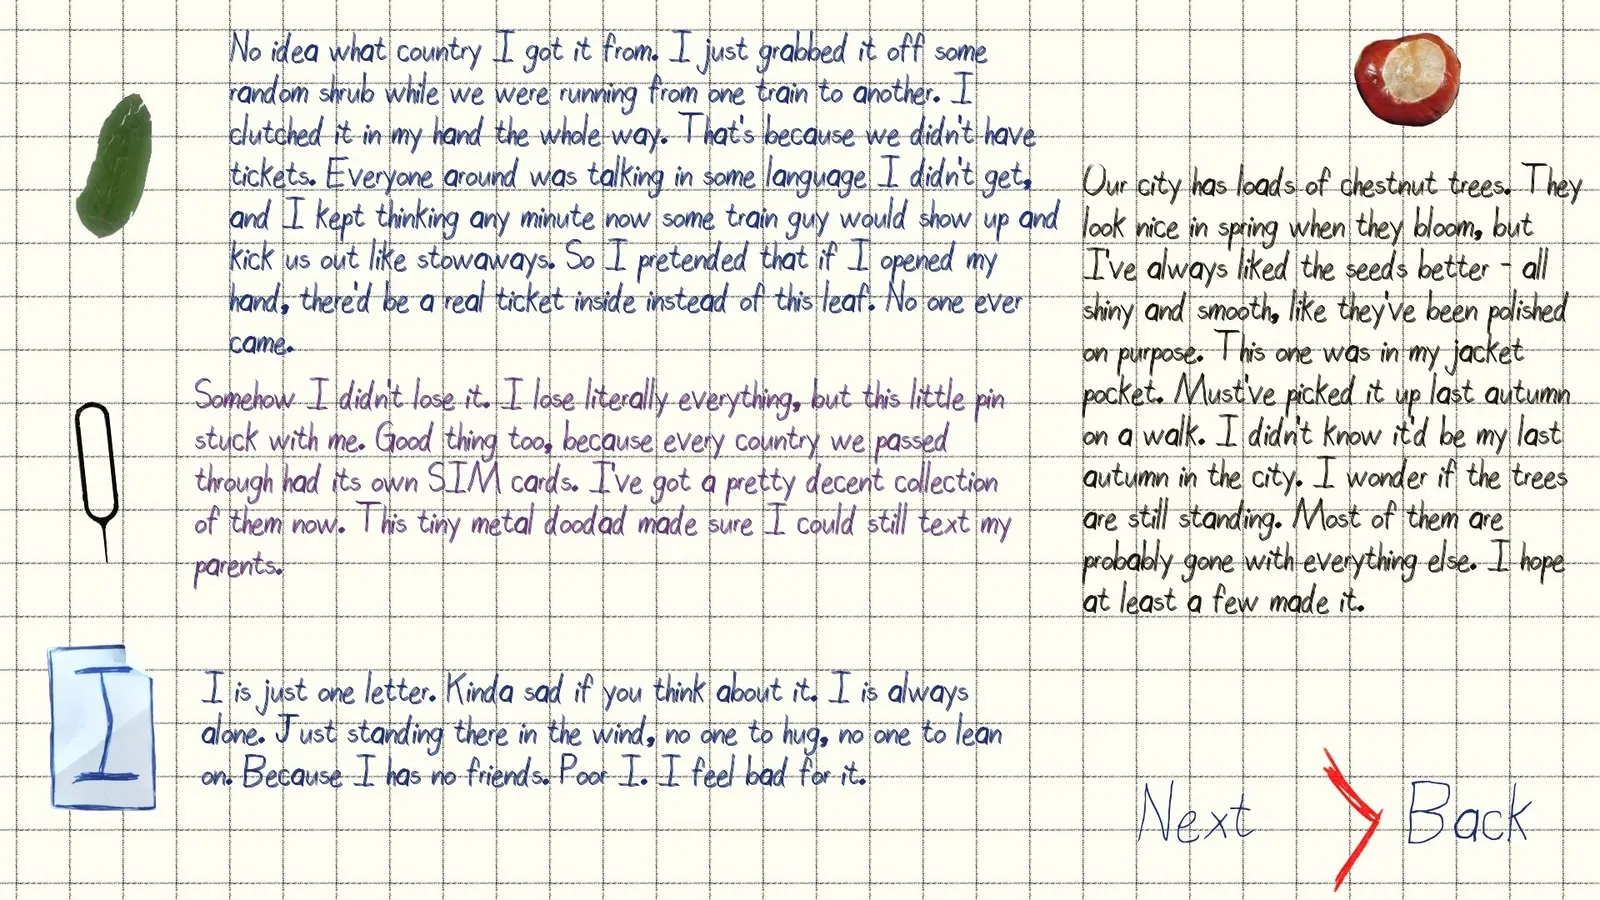 No idea what country I got it from. I just grabbed it off some
random shrub while we were running from one train to another. I
clutched it in my hand the whole way. That's because we didn't have
tickets. Everyone around was talking in some language I didn't get,
and I kept thinking any minute now some train guy would show up and
kick us out like stowaways. So I pretended that if I opened my
hand, there'd be a real ticket inside instead of this leaf. No one ever
came.
Somehow I didn't lose it. I lose literally everything, but this little pin
stuck with me. Good thing too, because every country we passed
through had its own SIM cards. I've got a pretty decent collection
of them now. This tiny metal doodad made sure I could still text my
parents.
I
I is just one letter. Kinda sad if you think about it. I is always
alone. Just standing there in the wind, no one to hug, no one to lean
on. Because I has no friends. Poor I. I feel bad for it.
Our city has loads of chestnut trees. They
look nice in spring when they bloom, but
I've always liked the seeds better - all
shiny and smooth, like they've been polished
on purpose. This one was in my jacket
pocket. Must've picked it up last autumn
on a walk. I didn't know it'd be my last
autumn in the city. I wonder if the trees
are still standing. Most of them are
probably gone with everything else. I hope
at least a few made it.
Next
Back